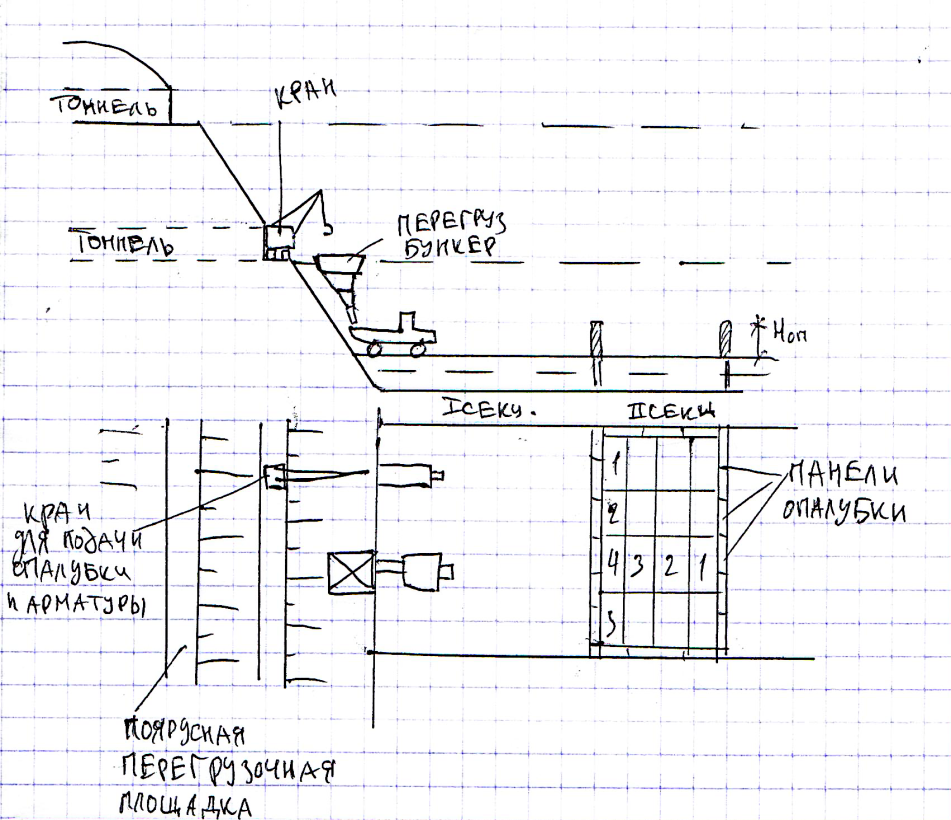 КРАН
ТОННЕЛЬ
ТОННЕЛЬ
ПЕРЕГРУЗ
БУНКЕР
Hоп
I СЕКЦ.
II СЕКЦ
1
2
4 3 2 1
5
ПАНЕЛИ
ОПАЛУБКИ
КРАН
ДЛЯ ПОДАЧИ
ОПАЛУБКИ
И АРМАТУРЫ
ПОЯРУСНАЯ
ПЕРЕГРУЗОЧНАЯ
ПЛОЩАДКА